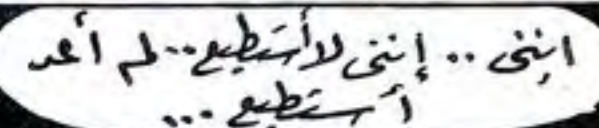 إنني .. إنني لا أستطيع .. لم أعد
أستطيع ...